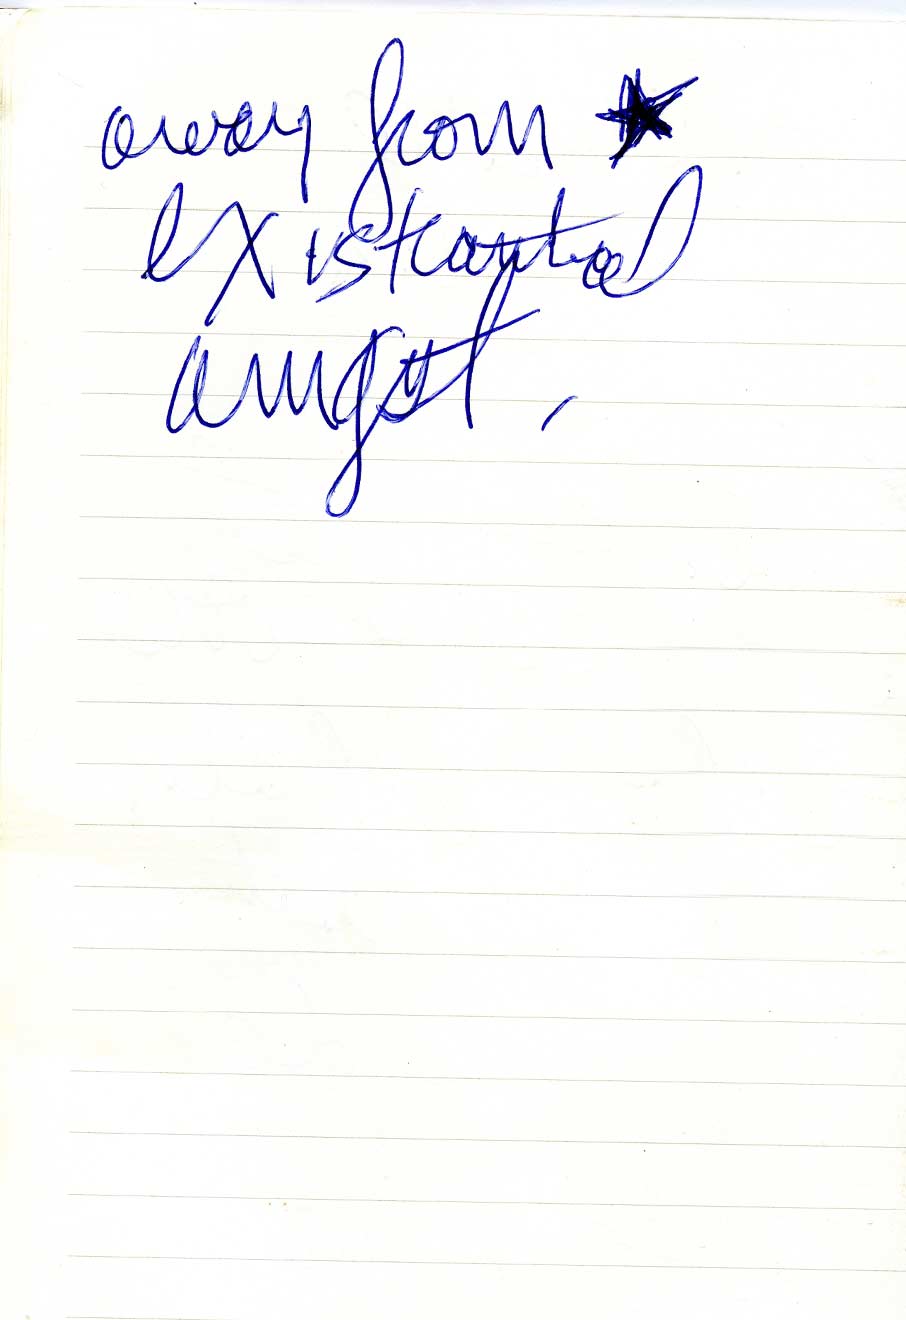 away from
existantial
angst.